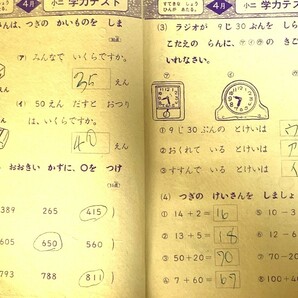 4月 小二 学力テスト
は、つぎの かいものを しま
(ア) みんなで いくらですか。
35 えん
(イ) 50えん だすと おつり
は、いくらですか。
えん
おおきい かずに、○を つけ
389 265 415
605 650 560
793 788 811
4月 小二 学力テスト
(3) ラジオが 9じ30ぷんの
こたえの らんに、
いれなさい。
① 9じ30ぷんの とけいは
② おくれて いる とけいは
③ すすんで いる とけいは
(4) つぎの けいさんを しましょ
① 14+2= 16
② 13+5= 18
③ 50+20=
④ 7+60= 67
⑤ 10-3
⑥ 18-4
⑦ 90-6
⑧ 100-